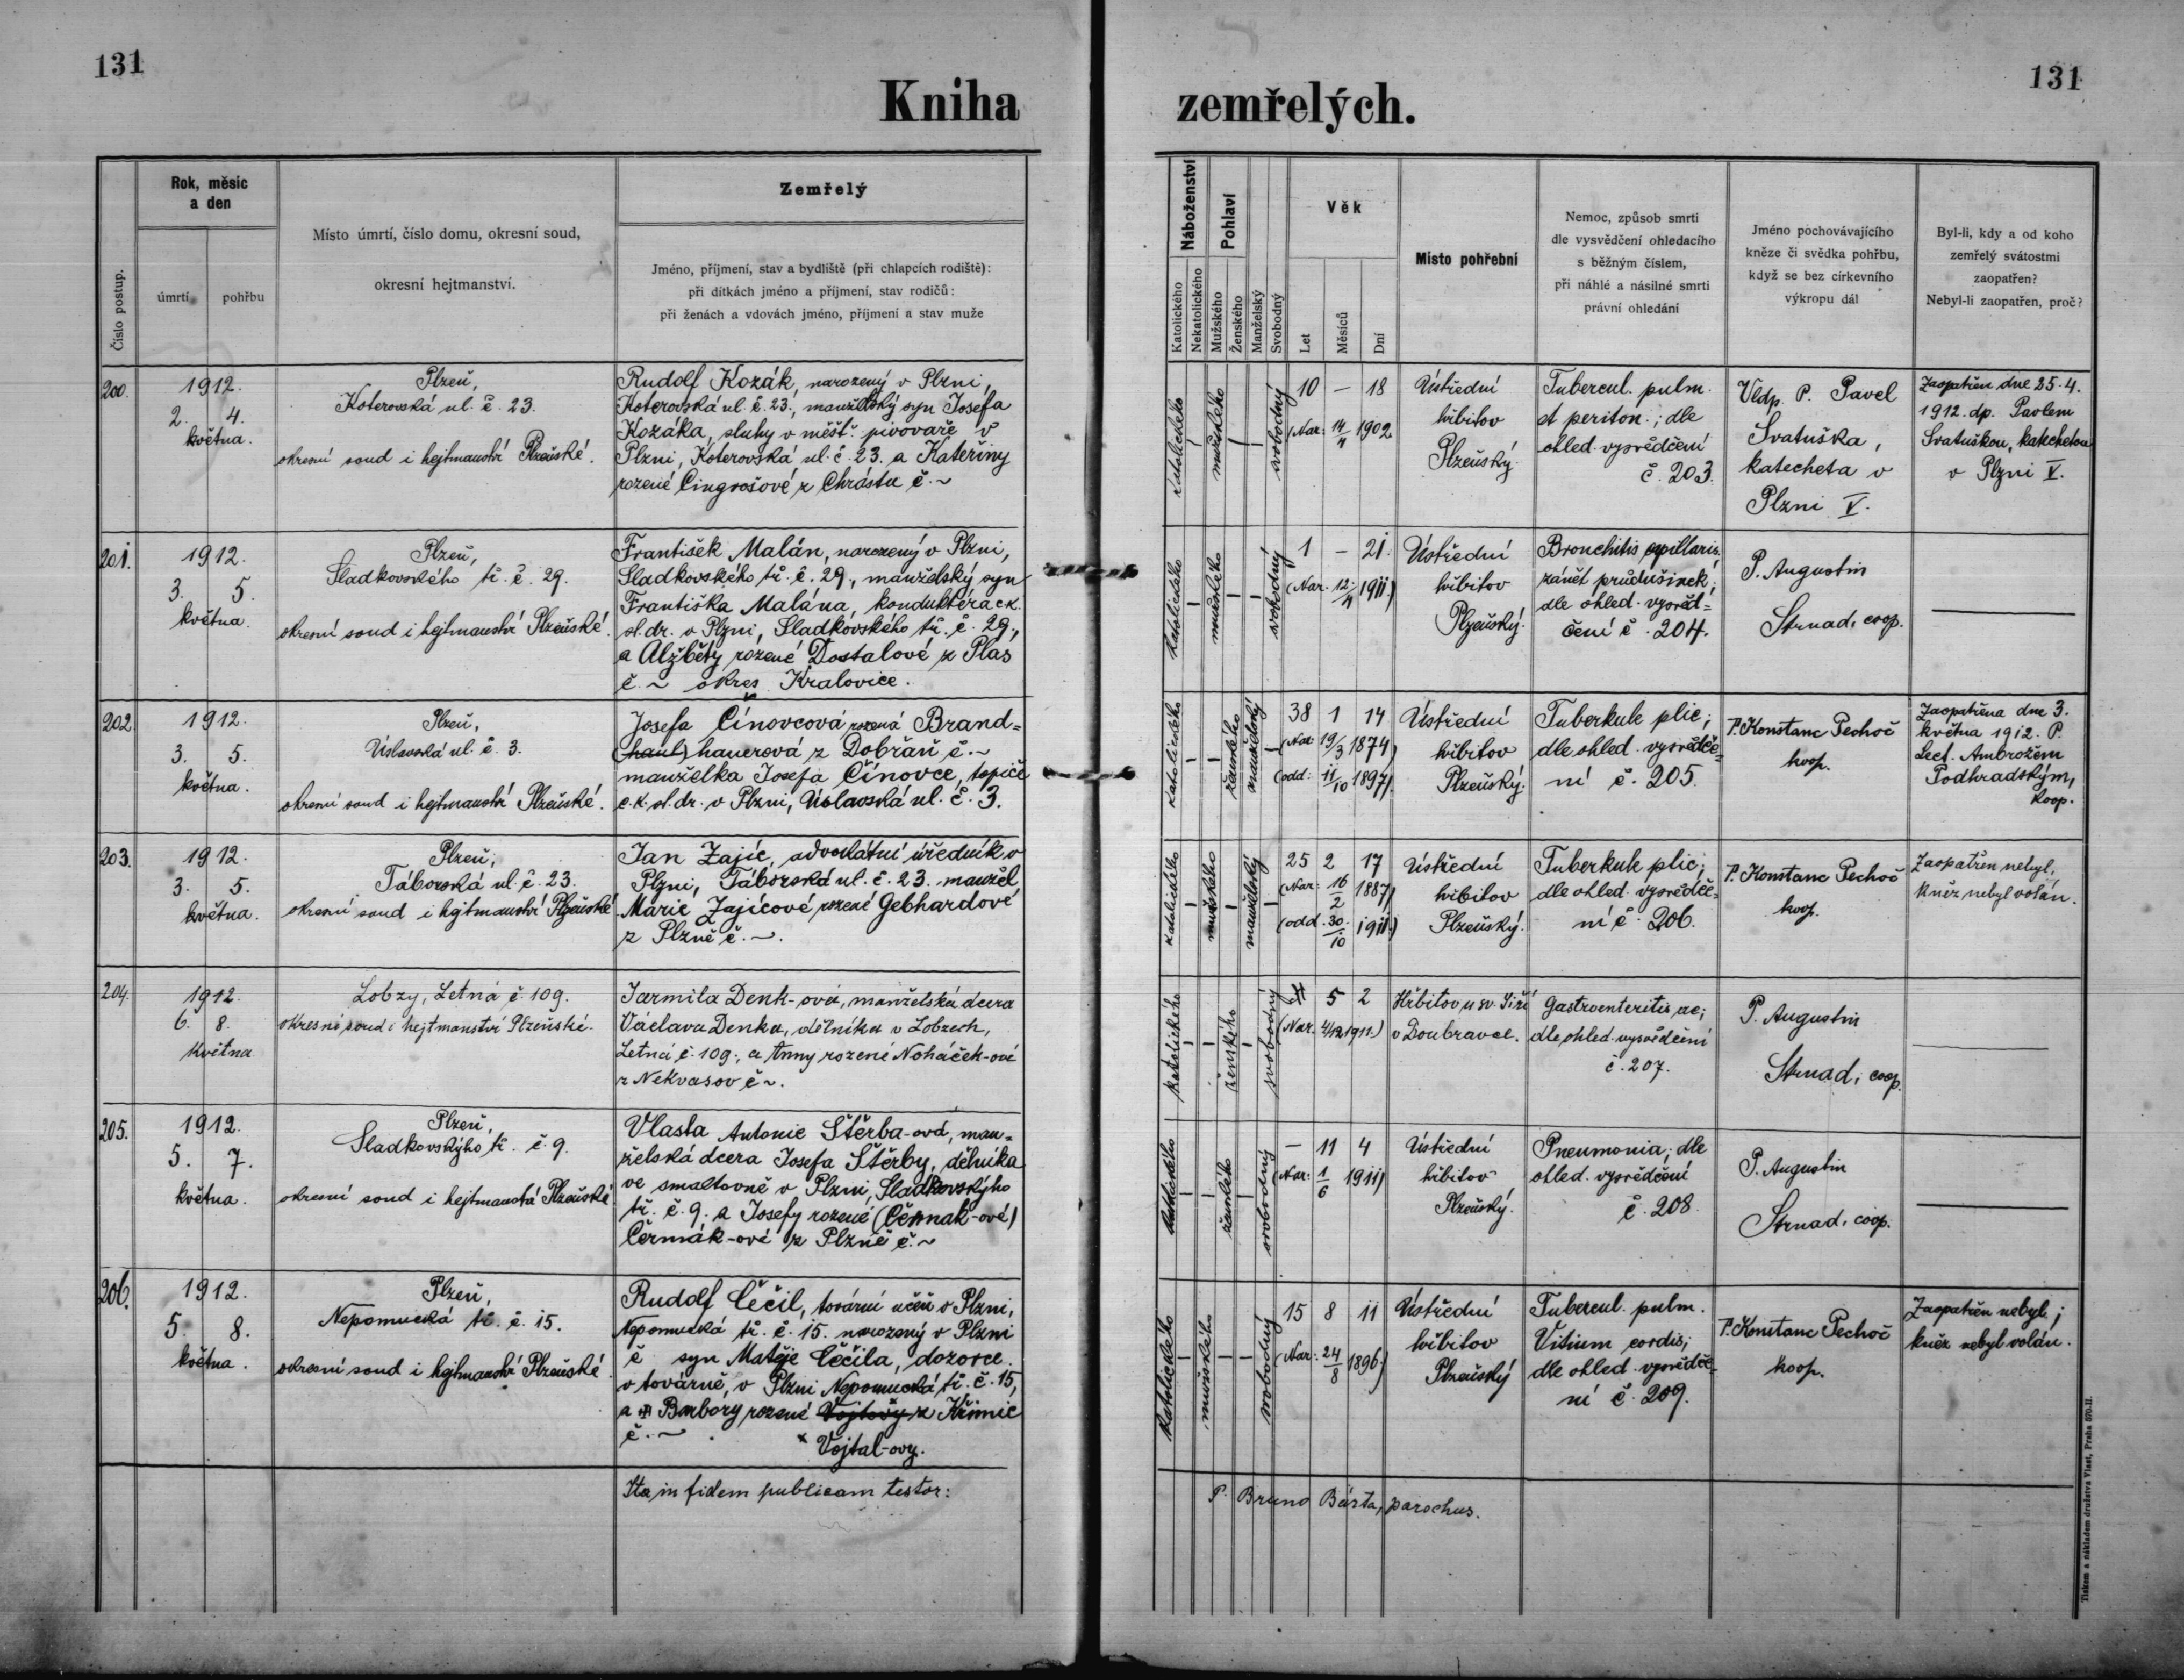 131
131
Kniha zemřelých.
Číslo postup.
Rok, měsíc
a den
úmrtí
pohřbu
Místo úmrtí, číslo domu, okresní soud,
okresní hejtmanství.
Zemřelý
Jméno, příjmení, stav a bydliště (při chlapcích rodiště):
při dítkách jméno a příjmení, stav rodičů:
při ženách a vdovách jméno, příjmení a stav muže
Náboženství
Katolického
Nekatolického
Pohlaví
Mužského
Ženského
Manželský
Svobodný
Věk
Let
Měsíců
Dní
Místo pohřební
Nemoc, způsob smrti
dle vysvědčení ohledacího
s běžným číslem,
při náhlé a násilné smrti
právní ohledání
Jméno pochovávajícího
kněze či svědka pohřbu,
když se bez církevního
výkropu dál
Byl-li, kdy a od koho
zemřelý svátostmi
zaopatřen?
Nebyl-li zaopatřen, proč?
200.
1912.
2. 4.
května.
Plzeň,
Koterovská ul. č. 23.
okresní soud i hejtmanství Plzeňské.
Rudolf Kozák, narozený v Plzni,
Koterovská ul. č. 23., manželský syn Josefa
Kozáka, sluhy v měšť. pivovaře v
Plzni, Koterovská ul. č. 23. a Kateřiny
rozené Cingrošové z Chrástu č. ~
katolického
mužského
svobodný
10 — 18
(Nar: 14/4 1902
Ústřední
hřbitov
Plzeňský.
Tubercul. pulm.
et periton.; dle
ohled. vysvědčení
č. 203.
Vldp. P. Pavel
Svatuška,
katecheta v
Plzni V.
Zaopatřen dne 25. 4.
1912. dp. Pavlem
Svatuškou, katechetou
v Plzni V.
201.
1912.
3. 5.
května.
Plzeň,
Sladkovského tř. č. 29.
okresní soud i hejtmanství Plzeňské.
František Malán, narozený v Plzni,
Sladkovského tř. č. 29., manželský syn
Františka Malána, konduktéra c.k.
st. dr. v Plzni, Sladkovského tř. č. 29.,
a Alžběty rozené Dostalové z Plas
č. ~ okres Kralovice.
katolického
mužského
svobodný
1 — 21.
(Nar. 12./4 1911.)
Ústřední
hřbitov
Plzeňský.
Bronchitis capillaris,
zánět průdušinek;
dle ohled. vysvěd=
čení č. 204.
P. Augustin
Strnad, coop.
202.
1912.
3. 5.
května.
Plzeň,
Úslavská ul. č. 3.
okresní soud i hejtmanství Plzeňské.
Josefa Čínovcová rozená Brand=
(haul) hauerová z Dobřan č. ~
manželka Josefa Čínovce, topiče
c. k. st. dr. v Plzni, Úslavská ul. č. 3.
katolického
ženského
manželský
38 1 14
(Nar: 19/3 1874)
(odd: 11/10 1897).
Ústřední
hřbitov
Plzeňský.
Tuberkule plic;
dle ohled. vysvědče=
ní č. 205.
P. Konstanc Pechoč
koop.
Zaopatřena dne 3.
května 1912. P.
Lect. Ambrožem
Podhradským,
koop.
203.
1912.
3. 5.
května.
Plzeň,
Táborská ul. č. 23.
okresní soud i hejtmanství Plzeňské.
Jan Zajíc, advokátní úředník v
Plzni, Táborská ul. č. 23. manžel
Marie Zajícové rozené Gebhardové
z Plzně č. ~.
katolického
mužského
manželský
25 2 17
(Nar: 16/2 1887)
(odd. 30./10 1911.)
Ústřední
hřbitov
Plzeňský.
Tuberkule plic;
dle ohled. vysvědče=
ní č. 206.
P. Konstanc Pechoč
koop.
Zaopatřen nebyl,
kněz nebyl volán.
204.
1912.
6. 8.
května
Lobzy, Letná č. 109.
okresní soud i hejtmanství Plzeňské.
Jarmila Denk-ová, manželská dcera
Václava Denka, dělníka v Lobzech,
Letná č. 109., a Anny rozené Noháček-ové
z Nekvasov č ~.
katolického
ženského
svobodný
5 2
(Nar. 4/12 1911.)
Hřbitov u sv. Jiří
v Doubravce.
Gastroenteritis ac;
dle ohled. vysvědčení
č. 207.
P. Augustin
Strnad, coop.
205.
1912.
5. 7.
května.
Plzeň,
Sladkovskýho tř. č. 9.
okresní soud i hejtmanství Plzeňské
Vlasta Antonie Štěrba-ová, man=
želská dcera Josefa Štěrby, dělníka
ve smaltovně v Plzni, Sladkovskýho
tř. č. 9. a Josefy rozené (Čermak-ové)
Čermák-ové z Plzně č. ~
katolického
ženského
svobodný
— 11 4
(Nar: 1/6 1911)
Ústřední
hřbitov
Plzeňský.
Pneumonia; dle
ohled. vysvědčení
č. 208.
P. Augustin
Strnad, coop.
206.
1912.
5. 8.
května.
Plzeň,
Nepomucká tř. č. 15.
okresní soud i hejtmanství Plzeňské.
Rudolf Čečil, tovární učeň v Plzni,
Nepomucká tř. č. 15. narozený v Plzni
č syn Matěje Čečila, dozorce
v továrně, v Plzni Nepomucká tř. č. 15,
a Barbory rozené Vojtovy z Křimic
č. ~ . × Vojtal-ovy.
katolického
mužského
svobodný
15 8 11
(Nar: 24/8 1896.)
Ústřední
hřbitov
Plzeňský
Tubercul. pulm.
Vitium cordis;
dle ohled. vysvědče=
ní č. 209.
P. Konstanc Pechoč
koop.
Zaopatřen nebyl;
kněz nebyl volán.
Ita in fidem publicam testor:
P. Bruno Bárta, parochus.
Tiskem a nákladem družstva Vlast, Praha 570-II.